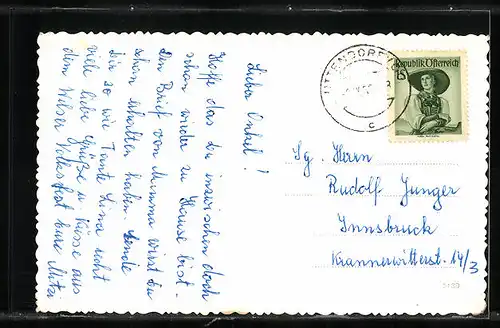 Lieber Onkel!
Hoffe das du inzwischen doch
schon wieder zu Hause bist.
Den Brief von Mamma wirst du
schon erhalten haben. Sende
dir so wie Tante Lisa recht
viele liebe Grüße u. Küsse aus
dem Welser Volksfest
UTTENDORF
c
Republik Österreich
Sg. Herrn
Rudolf Junger
Innsbruck
Krannewitterst. 14/3